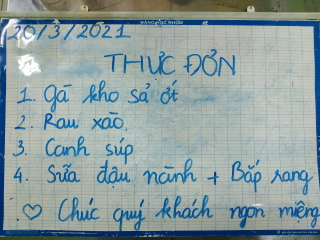 BẢNG HỌC NHÓM
20/3/2021
THỰC ĐƠN
1. Gà kho sả ớt
2. Rau xào,
3. Canh súp
4. Sữa đậu nành + Bắp rang
♡ Chúc quý khách ngon miệng